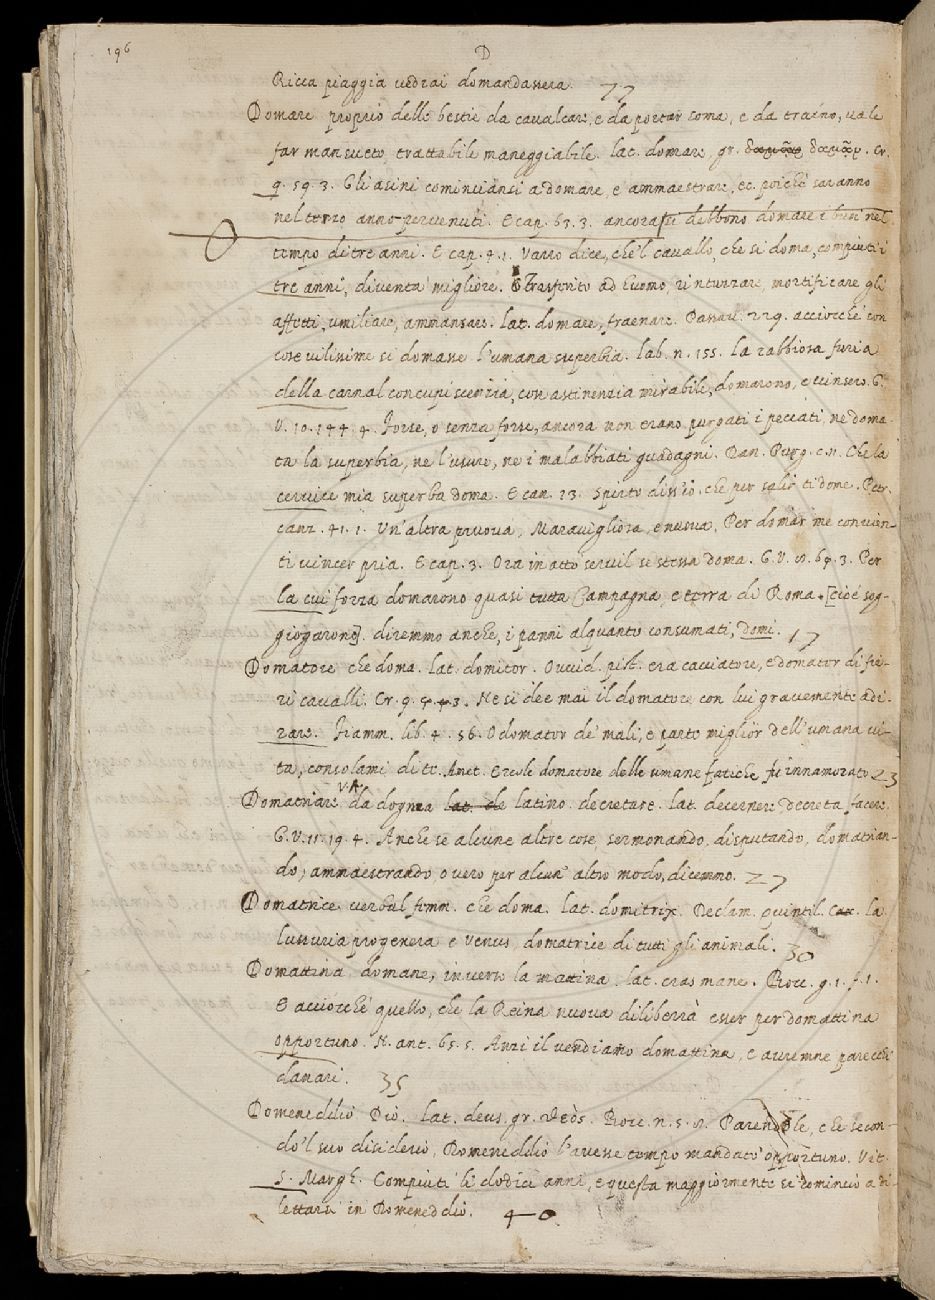 196
D
Ricca piaggia vedrai domandassera. 77
Domare proprio delle bestie da cavalcare, e da portar soma, e da traino, vale
far mansueto, trattabile maneggiabile. lat. domare, gr. δαμᾷν. Cr.
9. 59. 3. Gli asini cominciansi a domare, e ammaestrare, ec. poichè saranno
nel terzo anno pervenuti. E cap. 63. 3. ancora si debbono domare i buoi nel
tempo di tre anni. E cap. 4. 1. Varro dice, che'l cavallo, che si doma, compiuti i
tre anni, diventa migliore. E Trasferito ad huomo, rintuzzare, mortificare gli
affetti, umiliare, ammansare. lat. domare, fraenare. Passav. 229. acciocchè con
cose vilissime si domasse l'umana superbia. lab. n. 155. la rabbiosa furia
della carnal concupiscenzia, con astinenzia mirabile, domarono, e vinsero. G.
V. 10. 144. 4. Forse, o senza forse, ancora non erano purgati i peccati, ne doma-
ta la superbia, ne l'usure, ne i malabbiati guadagni. Dan. Purg. c. 11. Che la
cervice mia superba doma. E can. 23. Spirto diss'io, che per salir ti dome. Petr.
canz. 41. 1. Un'altra pruova, Maravigliosa, e nuova, Per domar me convien-
ti vincer pria. E cap. 3. Ora in atto servil se stessa doma. G. V. 8. 64. 3. Per
la cui forza domarono quasi tutta Campagna, e terra di Roma. [cioè sog-
giogarono]. diremmo anche, i panni alquanto consumati, domi. 17
Domatore che doma. Lat. domitor. Ovvid. pist. era cacciatore, e domator di fie-
ri cavalli. Cr. 9. 3. Ne si dee mai il domatore con lui gravemente adi-
rare. Fiamm. lib. 4. 56. O domator de' mali, e parte miglior dell'umana vi-
ta, consolami di te. Amet. Ercole domatore delle umane fatiche fu innamorato 23
V.A.
Domatriare da dogma latino. decretare. lat. decernere, decreta facere.
G. V. 11. 19. 4. Anche se alcune altre cose, sermonando, disputando, domatrian-
do, ammaestrando, overo per alcun' altro modo, dicemmo. 27
Domatrice verbal femm. che doma. lat. domitrix. Declam. Quintil. C. la
lussuria progenera e Venus, domatrice di tutti gli animali. 30
Domattina, domane, inverso la mattina. lat. cras mane. Bocc. g. 1. f. 1.
E acciocchè quello, che la Reina nuova dilibererà esser per domattina
opportuno. N. ant. 65. 5. Anzi il vendiamo domattina, e avremne parecchi
danari. 35
Domeneddio Dio. Lat. deus. gr. θεός. Bocc. n. 5. 8. Parendole, che secon-
do'l suo disiderio, Domeneddio l'avesse tempo mandato opportuno. Vit.
S. Margh. Compiuti li dodici anni, e questa maggiormente si cominciò a di-
lettare in Domeneddio. 40